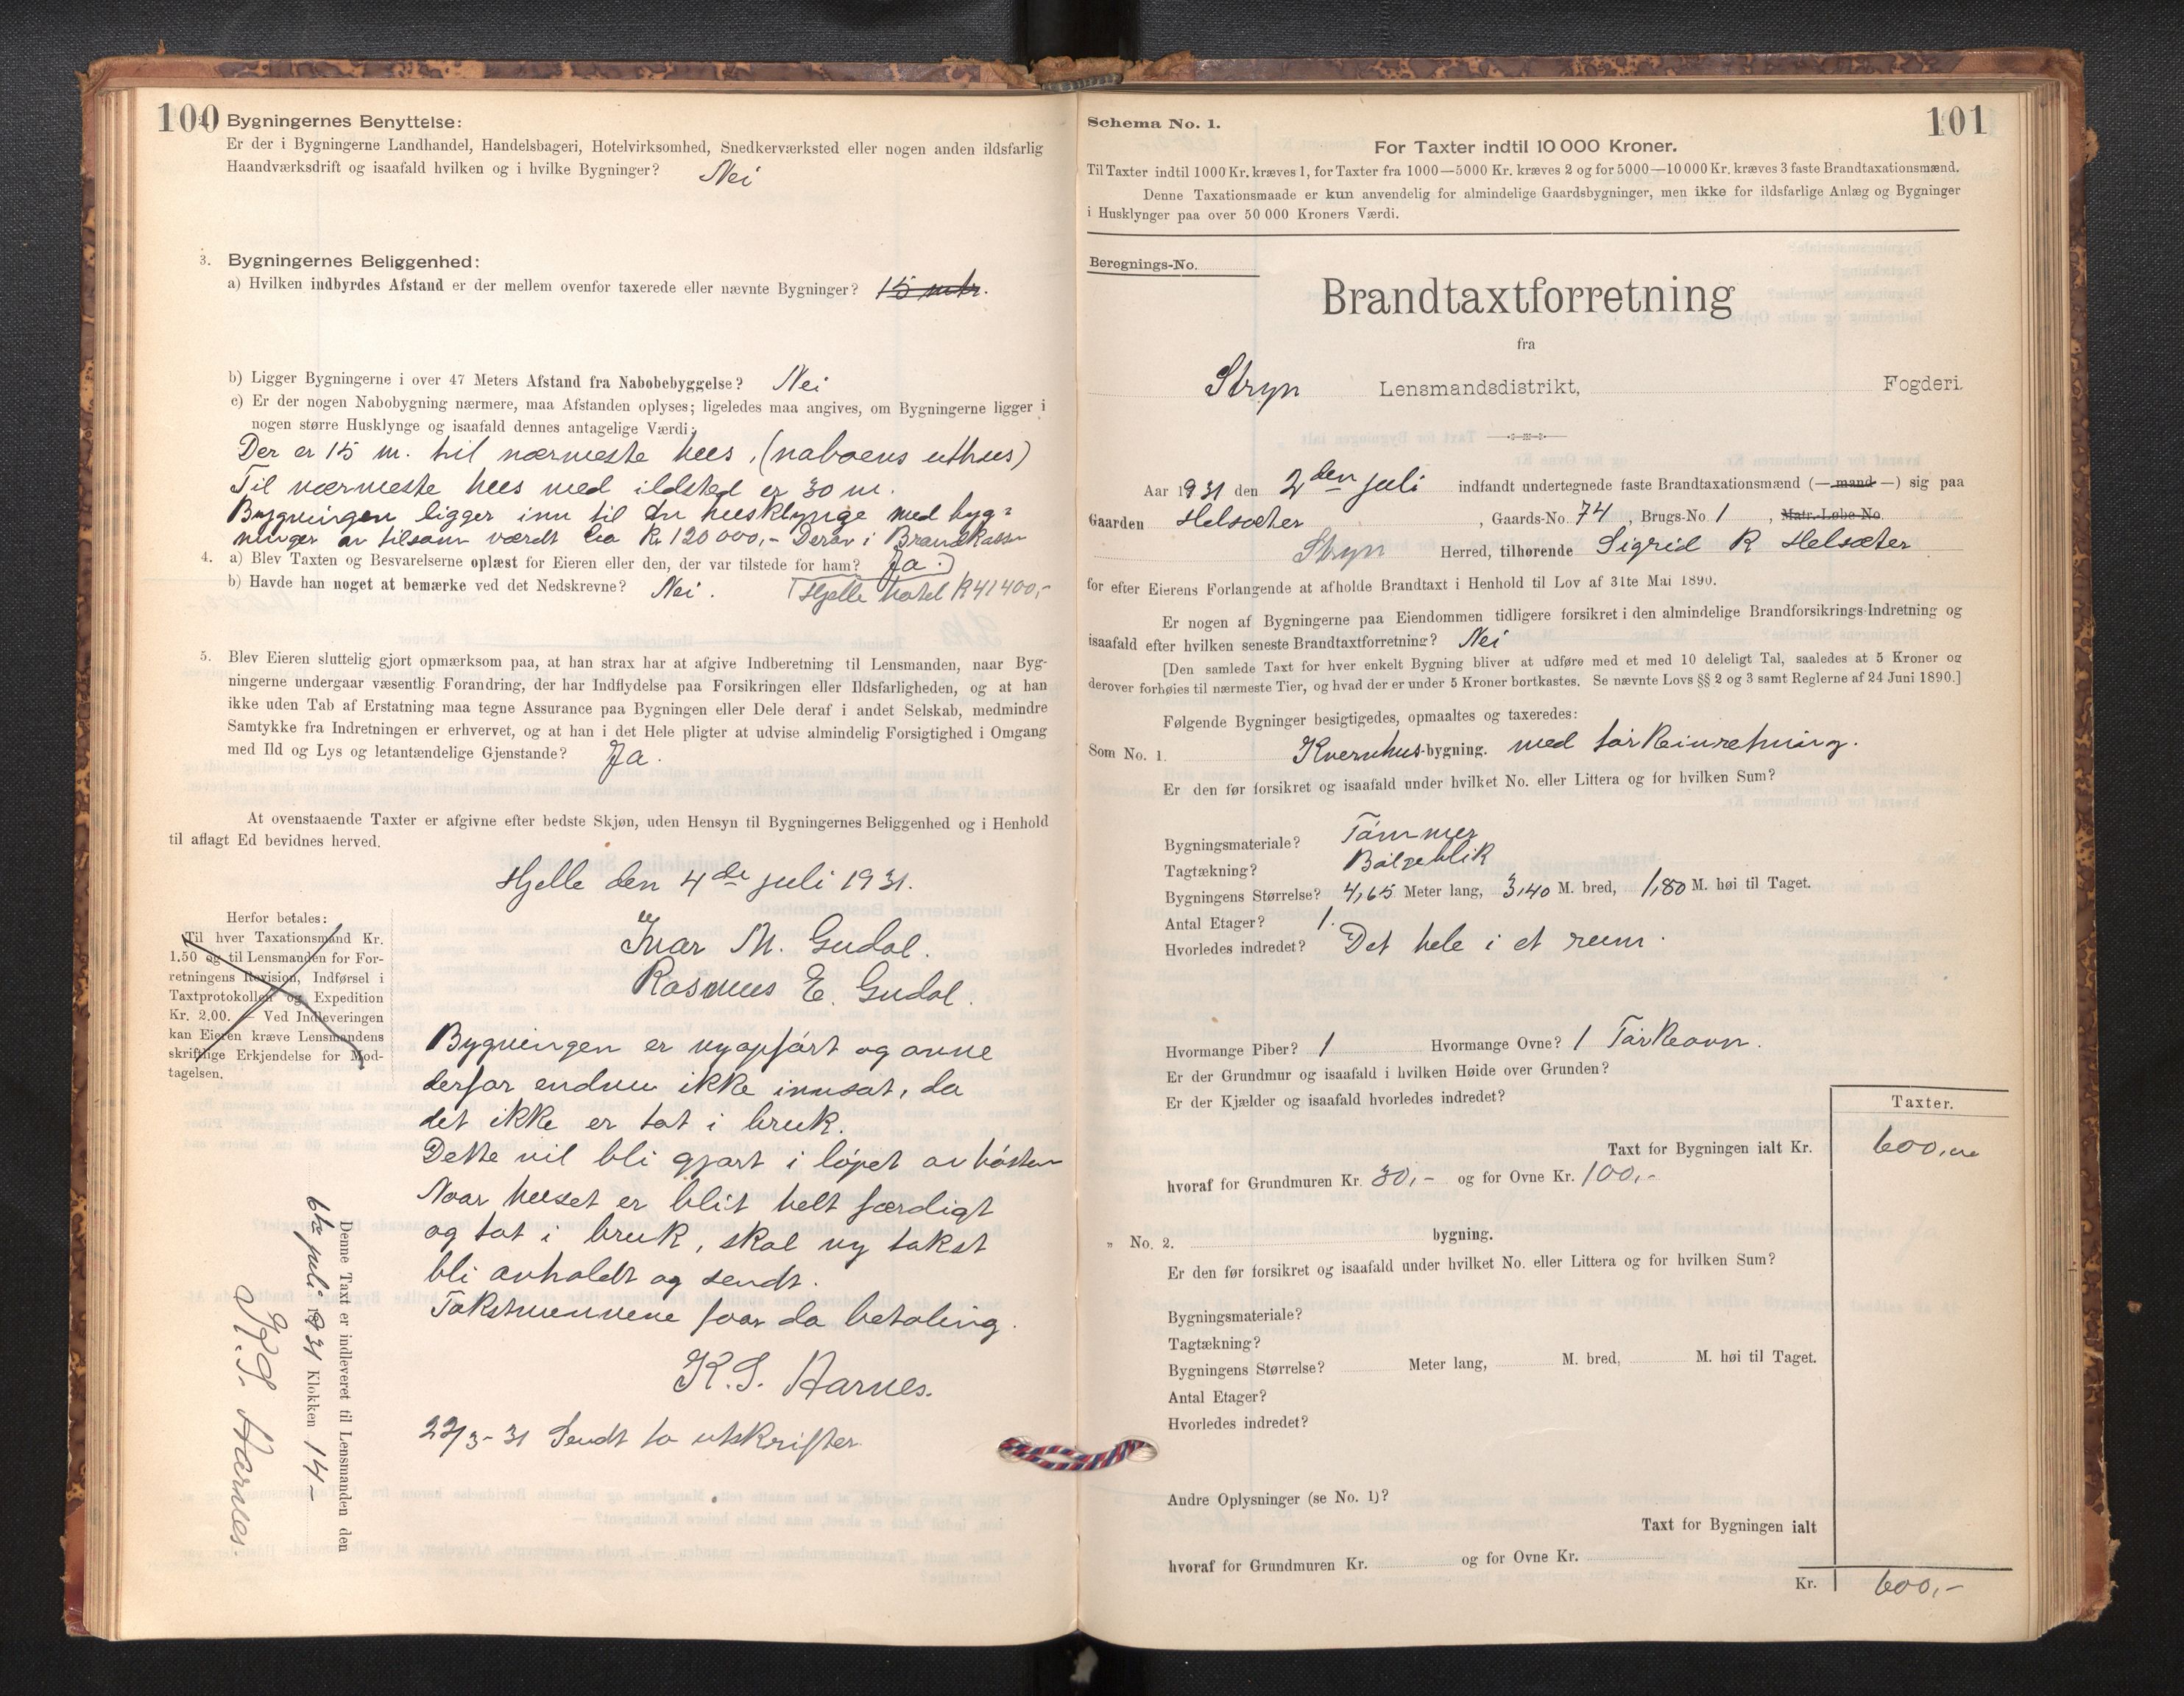 100
Bygningernes Benyttelse:
Er der i Bygningerne Landhandel, Handelsbageri, Hotelvirksomhed, Snedkerværksted eller nogen anden ildsfarlig
Haandværksdrift og isaafald hvilken og i hvilke Bygninger? Nei
3. Bygningernes Beliggenhed:
a) Hvilken indbyrdes Afstand er der mellem ovenfor taxerede eller nævnte Bygninger? 15 mtr.
b) Ligger Bygningerne i over 47 Meters Afstand fra Nabobebyggelse? Nei
c) Er der nogen Nabobygning nærmere, maa Afstanden oplyses; ligeledes maa angives, om Bygningerne ligger i
nogen større Husklynge og isaafald dennes antagelige Værdi:
Der er 15 m. til nærmeste hus, (naboens uthus)
Til nærmeste hus med ildsted er 30 m.
Bygningen ligger inn til en husklynge med byg-
ninger av tilsam værdt ca Kr 120 000,- Derav i Brandkassen
4. a) Blev Taxten og Besvarelserne oplæst for Eieren eller den, der var tilstede for ham? Ja.
b) Havde han noget at bemærke ved det Nedskrevne? Nei. (Hjelle hotel Kr 41400,-
5. Blev Eieren sluttelig gjort opmærksom paa, at han strax har at afgive Indberetning til Lensmanden, naar Byg-
ningerne undergaar væsentlig Forandring, der har Indflydelse paa Forsikringen eller Ildsfarligheden, og at han
ikke uden Tab af Erstatning maa tegne Assurance paa Bygningen eller Dele deraf i andet Selskab, medmindre
Samtykke fra Indretningen er erhvervet, og at han i det Hele pligter at udvise almindelig Forsigtighed i Omgang
med Ild og Lys og letantændelige Gjenstande? Ja.
At ovenstaaende Taxter er afgivne efter bedste Skjøn, uden Hensyn til Bygningernes Beliggenhed og i Henhold
til aflagt Ed bevidnes herved.
Hjelle den 4de juli 1931.
Ivar M. Gudal.
Rasmus E. Gudal.
Herfor betales:
Til hver Taxationsmand Kr.
1.50 og til Lensmanden for For-
retningens Revision, Indførsel i
Taxtprotokollen og Expedition
Kr. 2.00. — Ved Indleveringen
kan Eieren kræve Lensmandens
skriftlige Erkjendelse for Mod-
tagelsen.
Bygningen er nyopført og ovne
derfor endnu ikke innsat, da
det ikke er tat i bruk.
Dette vil bli gjort i løpet av høsten
Naar huset er blit helt færdigt
og tat i bruk, skal ny takst
bli avholdt og sendt.
Takstmennene faar da betaling.
K. S. Aarnes.
22/3-31 Sendt to utskrifter.
Denne Taxt er indleveret til Lensmanden den
6te juli 1931 Klokken 14-
K. S. Aarnes
101
Schema No. 1.
For Taxter indtil 10 000 Kroner.
Til Taxter indtil 1000 Kr. kræves 1, for Taxter fra 1000—5000 Kr. kræves 2 og for 5000—10 000 Kr. kræves 3 faste Brandtaxationsmænd.
Denne Taxationsmaade er kun anvendelig for almindelige Gaardsbygninger, men ikke for ildsfarlige Anlæg og Bygninger
i Husklynger paa over 50 000 Kroners Værdi.
Beregnings-No.
Brandtaxtforretning
fra
Stryn Lensmandsdistrikt, Fogderi.
Aar 1931 den 2den juli indfandt undertegnede faste Brandtaxationsmænd (—mand—) sig paa
Gaarden Helsæter, Gaards-No. 74, Brugs-No. 1, Matr.-Løbe-No.
Stryn Herred, tilhørende Sigrid R Helsæter
for efter Eierens Forlangende at afholde Brandtaxt i Henhold til Lov af 31te Mai 1890.
Er nogen af Bygningerne paa Eiendommen tidligere forsikret i den almindelige Brandforsikrings-Indretning og
isaafald efter hvilken seneste Brandtaxtforretning? Nei
[Den samlede Taxt for hver enkelt Bygning bliver at udføre med et med 10 deleligt Tal, saaledes at 5 Kroner og
derover forhøies til nærmeste Tier, og hvad der er under 5 Kroner bortkastes. Se nævnte Lovs §§ 2 og 3 samt Reglerne af 24 Juni 1890.]
Følgende Bygninger besigtigedes, opmaaltes og taxeredes:
Som No. 1. Kvernhus-bygning. med tørkeinretning.
Er den før forsikret og isaafald under hvilket No. eller Littera og for hvilken Sum?
Bygningsmateriale? Tømmer
Tagtækning? Bølgeblik
Bygningens Størrelse? 4,65 Meter lang, 3,40 M. bred, 1,80 M. høi til Taget.
Antal Etager? 1.
Hvorledes indredet? Det hele i et rum.
Hvormange Piber? 1 Hvormange Ovne? 1 Tørkeovn.
Er der Grundmur og isaafald i hvilken Høide over Grunden?
Er der Kjælder og isaafald hvorledes indredet?
Taxter.
Taxt for Bygningen ialt Kr. 600,
hvoraf for Grundmuren Kr. 30,- og for Ovne Kr. 100,-
„ No. 2. bygning.
Er den før forsikret og isaafald under hvilket No. eller Littera og for hvilken Sum?
Bygningsmateriale?
Tagtækning?
Bygningens Størrelse? Meter lang, M. bred, M. høi til Taget.
Antal Etager?
Hvorledes indredet?
Andre Oplysninger (se No. 1)?
Taxt for Bygningen ialt
hvoraf for Grundmuren Kr. og for Ovne Kr.
Kr. 600,-